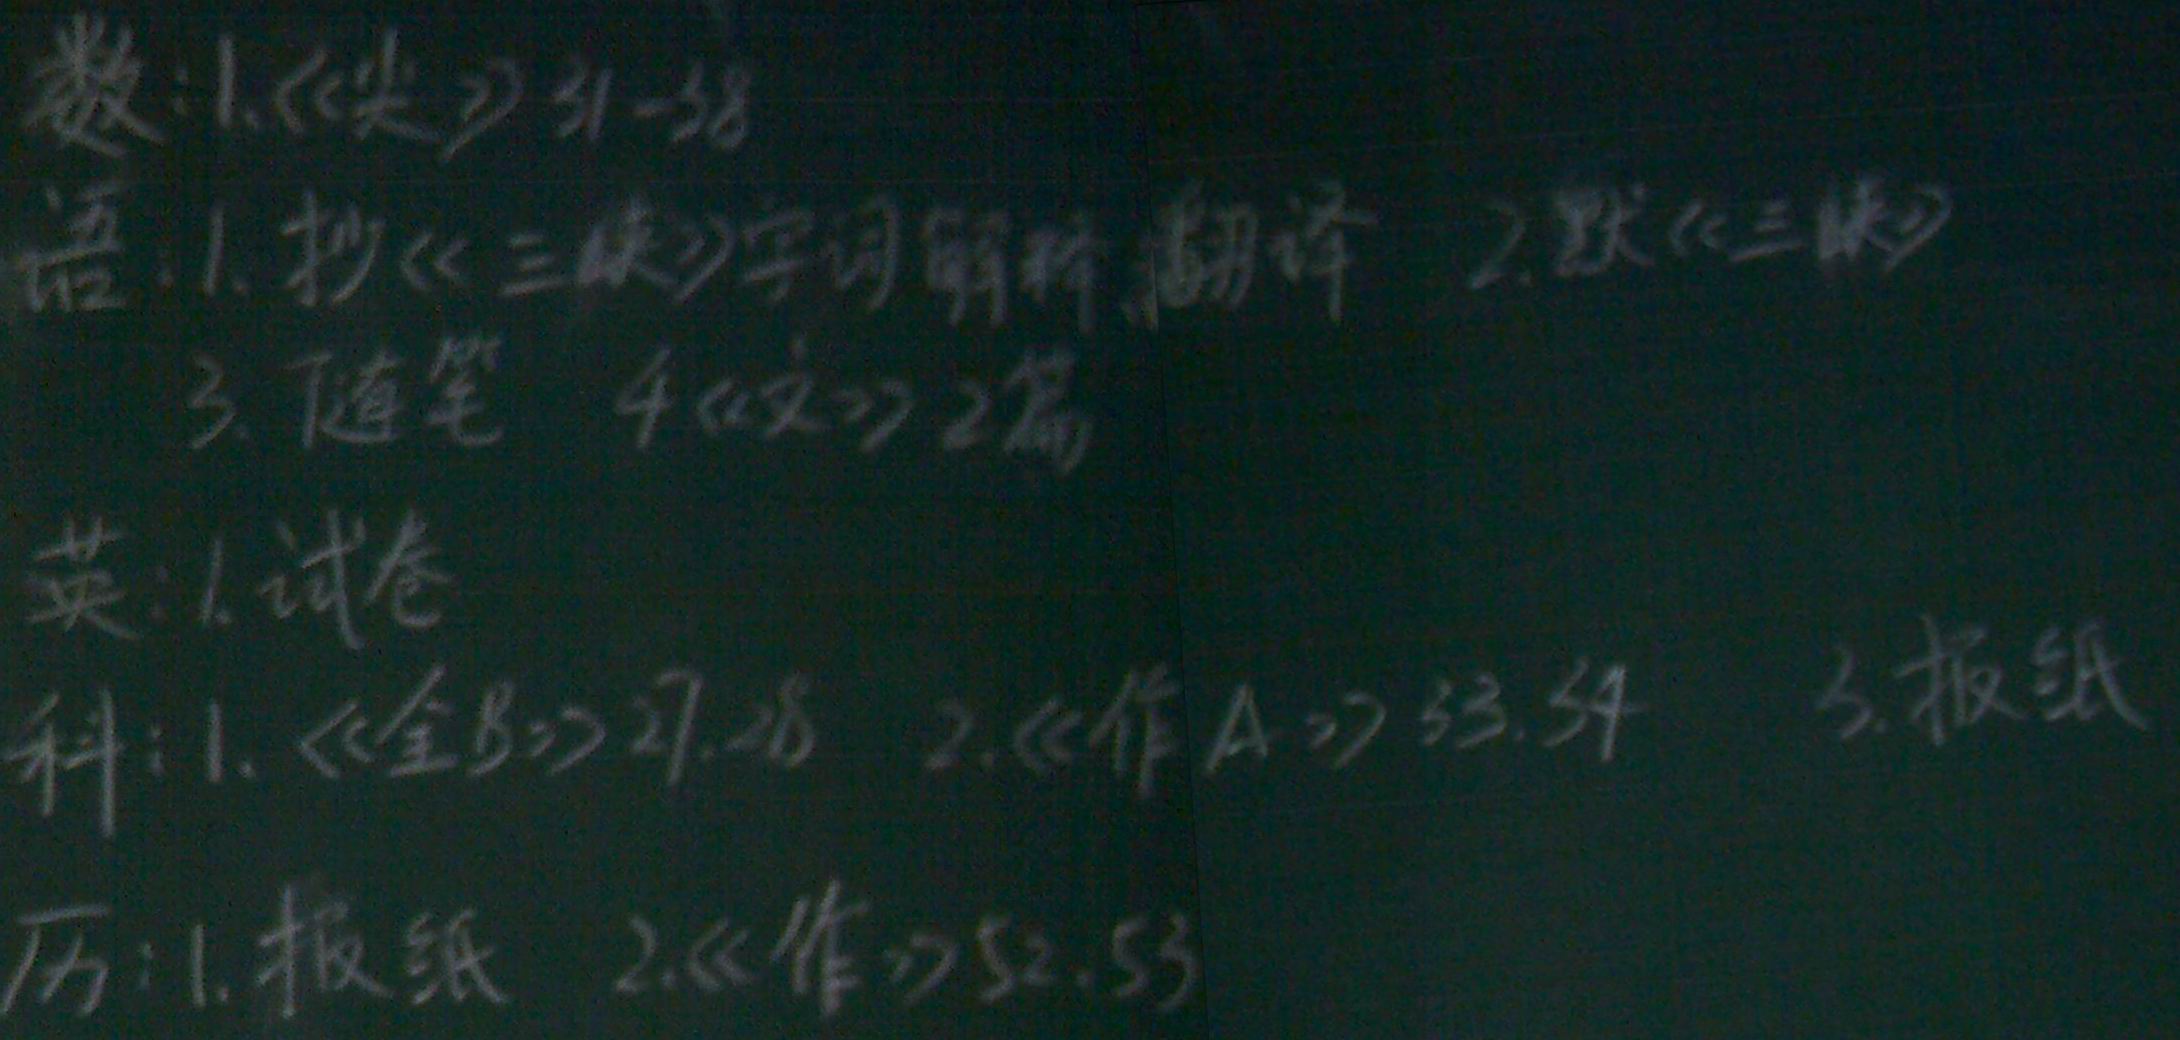 数:1.《尖》31-38
语:1.抄《三峡》字词解释,翻译 2.默《三峡》
3.随笔 4《文》2篇
英:1.试卷
科:1.《全B》27.28 2.《作A》33.34 3.报纸
历:1.报纸 2.《作》52.53